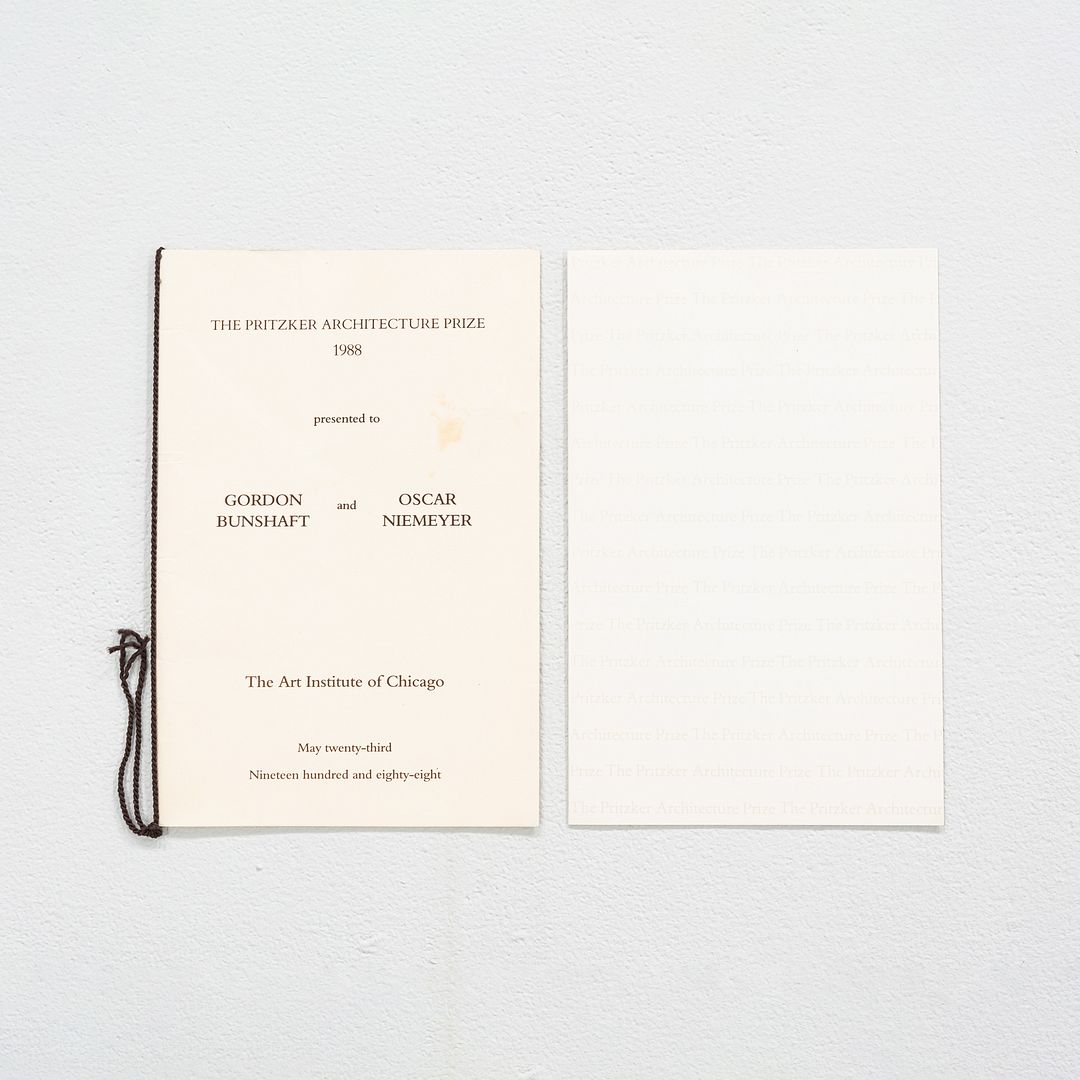 THE PRITZKER ARCHITECTURE PRIZE
1988
presented to
GORDON BUNSHAFT and OSCAR NIEMEYER
The Art Institute of Chicago
May twenty-third
Nineteen hundred and eighty-eight
Pritzker Architecture Prize The Pritzker Architecture
Architecture Prize The Pritzker Architecture Prize The
Prize The Pritzker Architecture Prize The Pritzker
The Pritzker Architecture Prize The Pritzker
Pritzker Architecture Prize The Pritzker Architecture Prize
Architecture Prize The Pritzker Architecture Prize The
The Pritzker Architecture Prize The Pritzker
The Pritzker Architecture Prize The Pritzker
Pritzker Architecture Prize The Pritzker Architecture Prize
Architecture Prize The Pritzker Architecture Prize The
Prize The Pritzker Architecture Prize The Pritzker
The Pritzker Architecture Prize The Pritzker
Pritzker Architecture Prize The Pritzker Architecture
Architecture Prize The Pritzker Architecture Prize The
Prize The Pritzker Architecture Prize The Pritzker
The Pritzker Architecture Prize The Pritzker